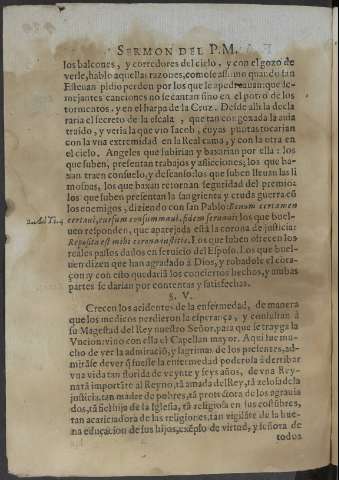 SERMON DEL P.M.
los balcones, y corredores del cielo, y con el gozo de
verle, hablo aquellas razones, como se assimo quando san
Esteuan pidio perdon por los que le apedreauan: que se-
mejantes canciones no se cantan sino en el potro de los
tormentos, y en el harpa de la Cruz. Desde alli la decla
raria el secreto de la escala, que tan gozada la auia
traido, y veria la que vio Iacob, cuyas puntas tocarian
con la vna extremidad en la Real cama, y con la otra en
el cielo. Angeles que subirian y baxarian por ella: los
que suben, presentan trabajos y aflicciones; los que ba-
xan traen consuelo, y descanso: los que suben lleuan las li
mosnas, los que baxan retornan seguridad del premio:
los que suben presentan la sangrienta y cruda guerra cō
los enemigos, diziendo con san Pablo: Bonum certamen
2. ad Tim. 4
certaui, cursum consummaui, fidem seruaui: los que buel-
uen responden, que aparejada está la corona de justicia:
Reposita est mihi corona iustitiæ. Los que suben ofrecen los
reales passos dados en seruicio del Esposo. Los que buel-
uen dizen que han agradado à Dios, y robadole el cora-
çon: y con esto quedaria los conciertos hechos, y ambas
partes se darian por contentas y satisfechas.
§. V.
Crecen los accidentes de la enfermedad, de manera
que los medicos perdieron la esperança, y consultan á
su Magestad del Rey nuestro Señor, para que se trayga la
Vncion: vino con ella el Capellan mayor. Aqui fue mu-
cho de ver la admiració, y lagrimas de los presentes, ad-
mirāse de ver q̄ fuesse la enfermedad poderosa à derribar
vna vida tan florida de veynte y seys años, de vna Rey-
na tā importāte al Reyno, tā amada del Rey, tā zelosa de la
justicia, tan madre de pobres, tā protectora de los agrauia
dos, tā fiel hija de la Iglesia, tā religiosa en sus costūbres,
tan acariciadora de las religiones, tan vigilāte de la bue-
na educacion de sus hijos, exēplo de virtud, y señora de
todos